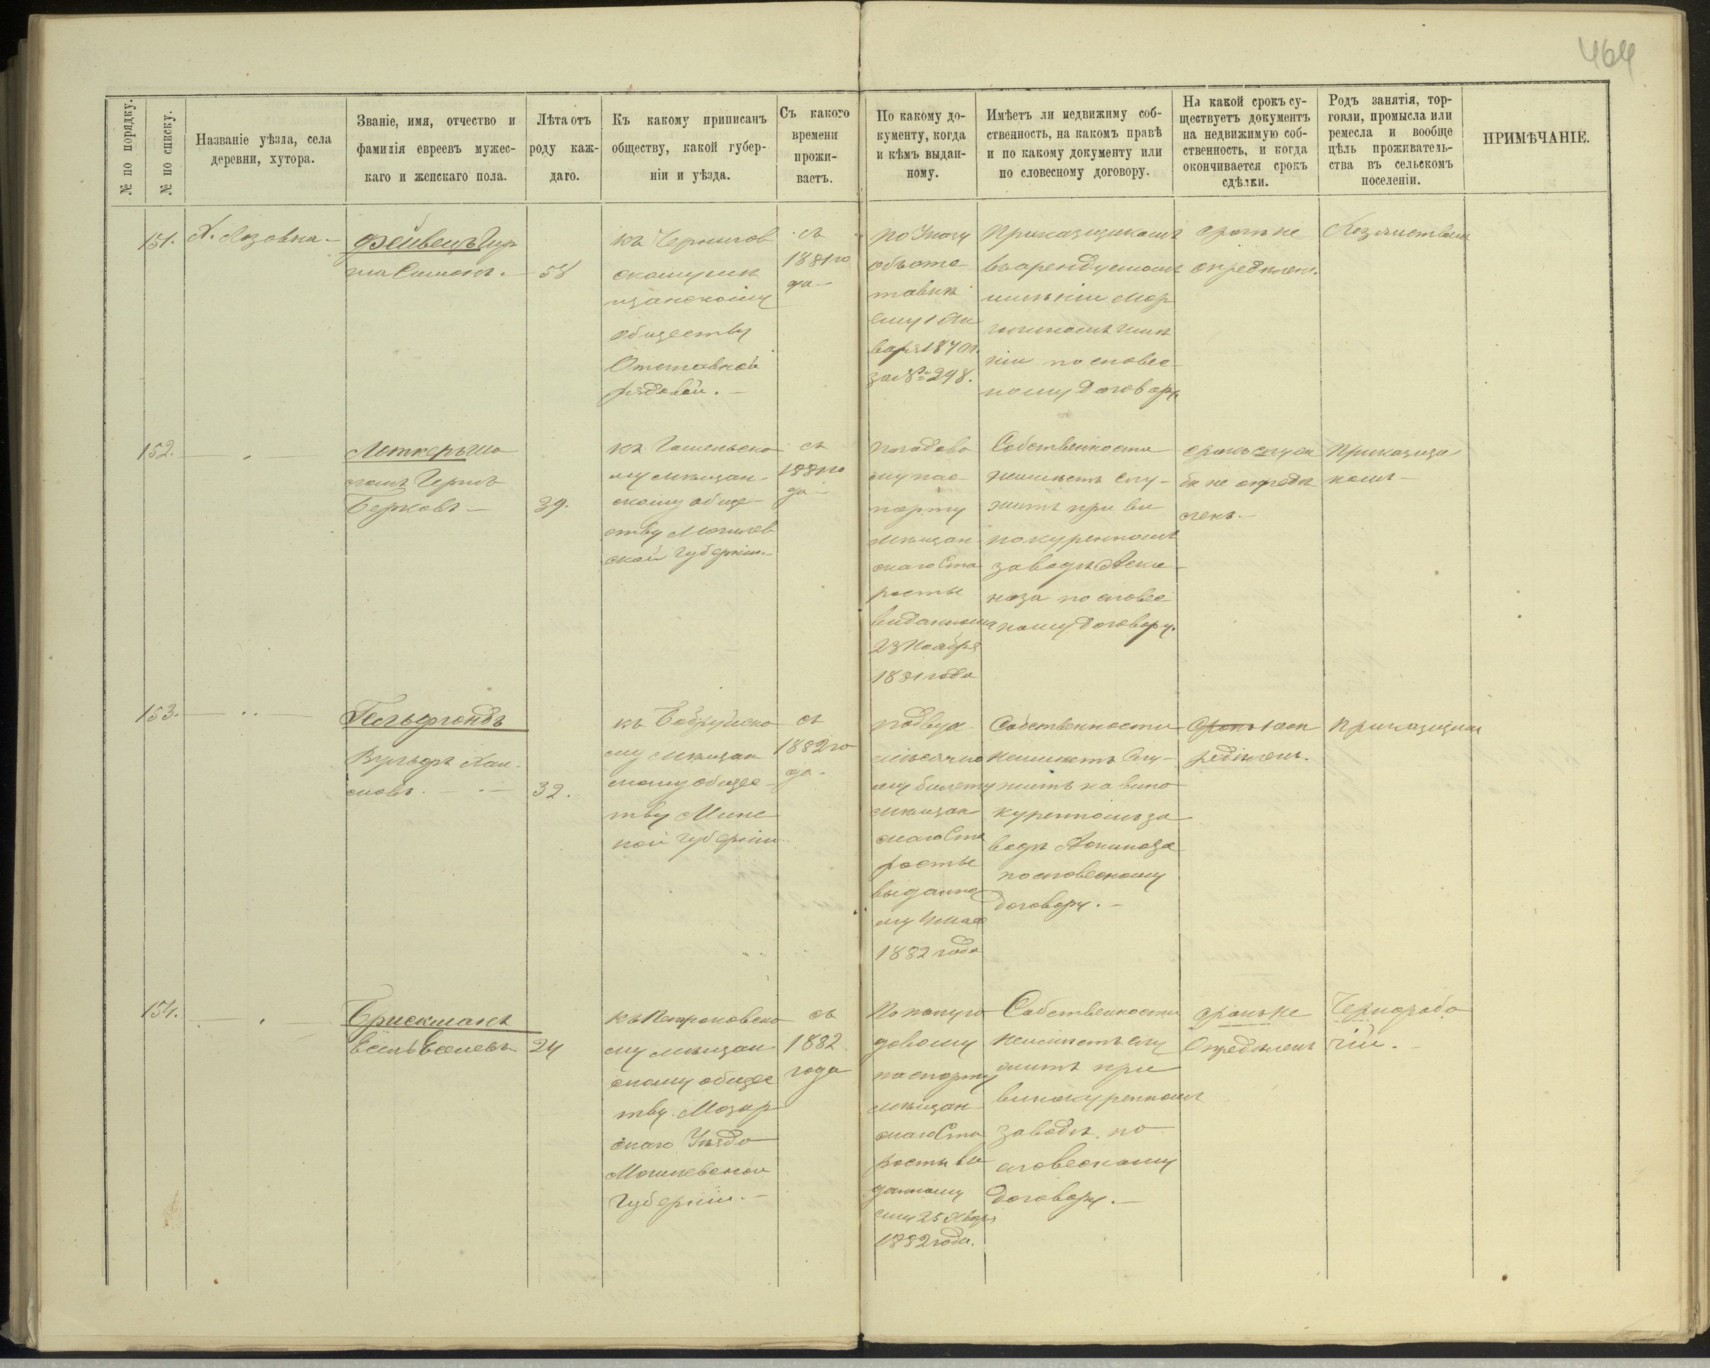 464
№ по порядку.
№ по списку.
Названіе уѣзда, села
деревни, хутора.
Званіе, имя, отчество и
фамилія евреевъ мужес-
каго и женскаго пола.
Лѣта отъ
роду каж-
даго.
Къ какому приписанъ
обществу, какой губер-
ніи и уѣзда.
Съ какого
времени
прожи-
ваетъ.
По какому до-
кументу, когда
и кѣмъ выдан-
ному.
Имѣетъ ли недвижиму соб-
ственность, на какомъ правѣ
и по какому документу или
по словесному договору.
На какой срокъ су-
ществуетъ документъ
на недвижимую соб-
ственность, и когда
окончивается срокъ
сдѣлки.
Родъ занятія, тор-
говли, промысла или
ремесла и вообще
цѣль проживатель-
ства въ сельскомъ
поселеніи.
ПРИМѢЧАНІЕ.
151.
Х. Лозовка —
58
къ Чернигов
скому мѣ
щанскому
обществу
Отставной
рядовой. —
съ
1881 го
да —
по Указу
объ отс
тавкѣ
ему 1 Ян
варя 1870 г.
за № 298.
Прикащикомъ
въ арендуемомъ
имѣніи
ніи по словес
ному договору
срокъ не
опредѣлен.
152.
Берковъ —
39.
му мѣщан-
скому обще-
ству Могилев
ской губерніи —
съ
1881 го
да —
погодово
му пас
порту
мѣщан
скаго Ста
росты
виданному
23 Ноября
1881 года
Собственности
неимѣетъ слу-
житъ при ви
нокуренномъ
заводѣ
по словес
ному договору.
не опредѣ
ленъ. —
Прикащи
комъ —
153.
Гельфондъ
Вульфъ Хаи-
мовъ. —
32.
къ Бобруйско
му мѣщан
скому общес
тву Минс
кой губерніи
съ
1882 го
да.
по двух
мѣсячно
му билету
мѣщан
скаго Ста
росты
выданно
му
1882 года
Собственности
неимѣетъ слу-
житъ на вино
куренномъ за
водѣ
по словесному
договору. —
Прикащиком
154.
Брискманъ
24
му мѣщан
скому общес
тву Мозыр
скаго Уѣзда
Могилевской
Губерніи. —
съ
1882
года
По полуго
довому
паспорту
мѣщан
скаго Ста
росты ви
данному
ему 25 Январ
1882 года.
Собственности
неимѣетъ слу
житъ при
винокуренномъ
заводѣ по
словесному
договору. —
срокъ не
Опредѣленъ
Чернорабо
чій. —